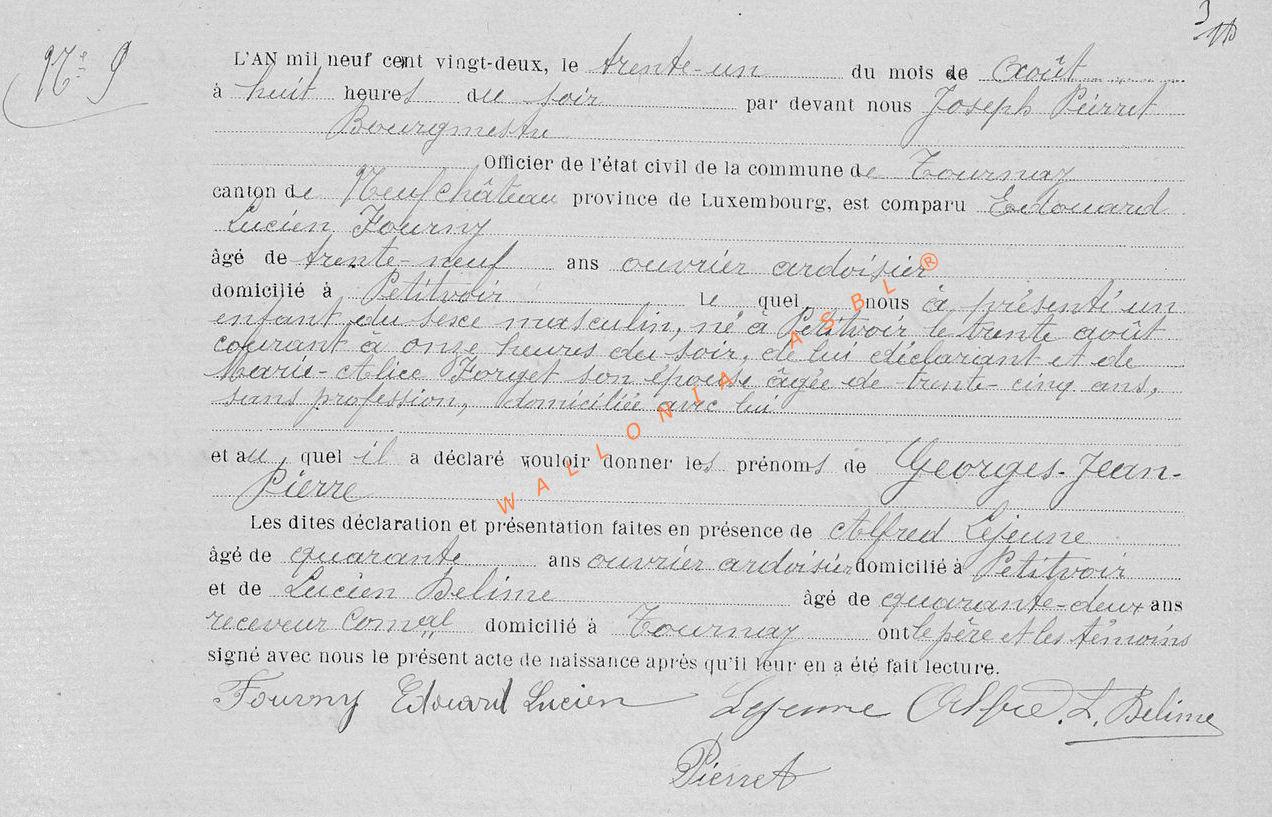 3
Nº 9
L'AN mil neuf cent vingt-deux, le trente-un du mois de Août
à huit heures du soir par devant nous Joseph Pierret
Bourgmestre
Officier de l'état civil de la commune de Tournay
canton de Neufchâteau province de Luxembourg, est comparu Edouard
Lucien Fourny
âgé de trente-neuf ans ouvrier ardoisier
domicilié à Petitvoir le quel nous à présenté un
enfant du sexe masculin, né à Petitvoir le trente août
courant à onze heures du soir, de lui déclarant et de
Marie-Alice Forget son épouse âgée de trente-cinq ans,
sans profession, domiciliée avec lui
et au quel il a déclaré vouloir donner les prénoms de Georges-Jean-
Pierre
Les dites déclaration et présentation faites en présence de Alfred Lejeune
âgé de quarante ans ouvrier ardoisier domicilié à Petitvoir
et de Lucien Belime âgé de quarante-deux ans
receveur comal domicilié à Tournay ont le père et les témoins
signé avec nous le présent acte de naissance après qu'il leur en a été fait lecture.
Fourny Edouard Lucien Lejeune Alfre. L. Belime
Pierret
WALLONIA ASBL ®